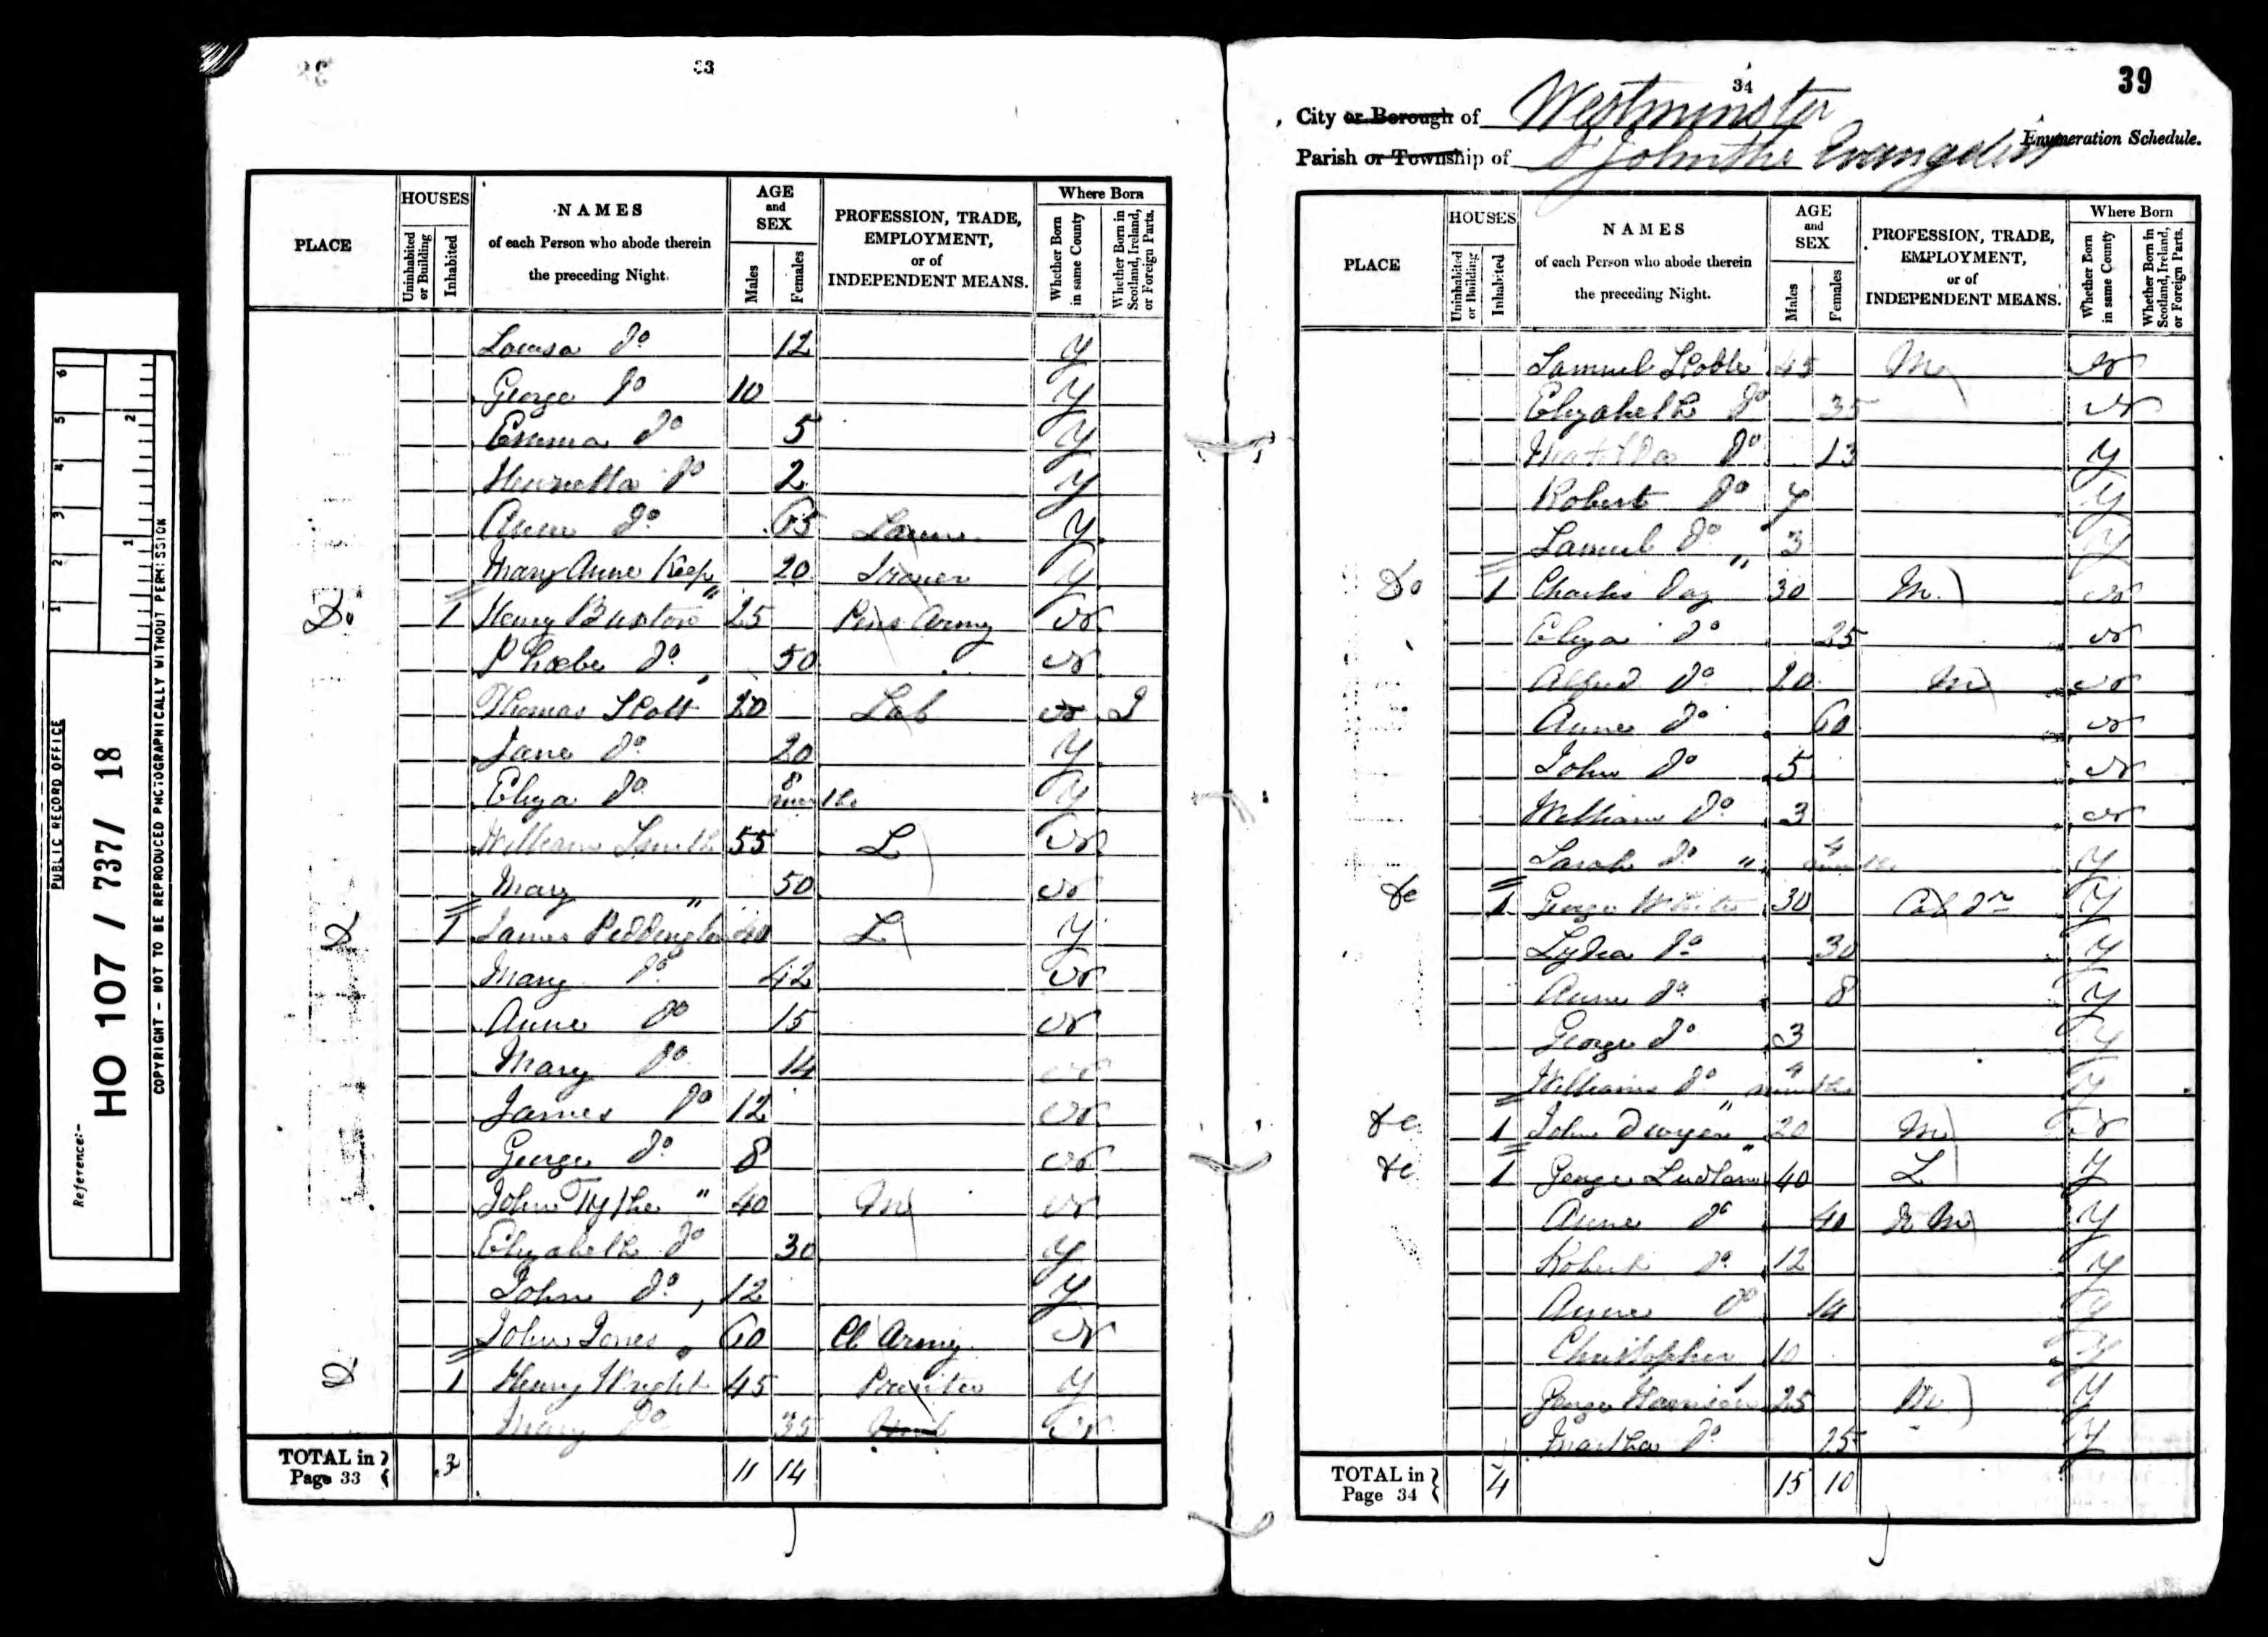 PUBLIC RECORD OFFICE
Reference:-
HO 107 / 737/ 18
COPYRIGHT - NOT TO BE REPRODUCED PHOTOGRAPHICALLY WITHOUT PERMISSION
1 2 3 4 5 6
1 2
33
PLACE
HOUSES
Uninhabited or Building
Inhabited
NAMES
of each Person who abode therein
the preceding Night.
AGE
and
SEX
Males
Females
PROFESSION, TRADE,
EMPLOYMENT,
or of
INDEPENDENT MEANS.
Where Born
Whether Born in same County
Whether Born in Scotland, Ireland, or Foreign Parts.
Louisa Do 12 Y
George Do 10 Y
Emma Do 5 Y
Henrietta Do 2 Y
Anne Do 65 Y
Mary Anne Keep 20 Y
Do 1 Henry Buxton 25 Pens Army N
Phoebe Do 50 N
Thomas Scott 20 Lab N I
Jane Do 20 Y
Eliza Do 8 months Y
William Smith 55 L N
Mary " 50 N
D 1 James Peddington 40 L Y
Mary Do 42 N
Anne Do 15 N
Mary Do 14 N
James Do 12 N
George Do 8 N
John Tythe " 40 M N
Elizabeth Do 30 Y
John Do 12 Y
John Jones 60 Cl Army N
D 1 Henry Wright 45 Y
Mary Do 35 N
TOTAL in Page 33 3 11 14
34
39
City or Borough of Westminster
Enumeration Schedule.
Parish or Township of St John the Evangelist
PLACE
HOUSES
Uninhabited or Building
Inhabited
NAMES
of each Person who abode therein
the preceding Night.
AGE
and
SEX
Males
Females
PROFESSION, TRADE,
EMPLOYMENT,
or of
INDEPENDENT MEANS.
Where Born
Whether Born in same County
Whether Born in Scotland, Ireland, or Foreign Parts.
Samuel 45 M N
Elizabeth Do 35 N
Matilda Do 13 Y
Robert Do 7 Y
Samuel Do 3 Y
Do 1 Charles Day 30 M N
Eliza Do 25 N
Alfred Do 20 M N
Anne Do 60 N
John Do 5 N
William Do 3 N
Sarah Do 4 months Y
Do 1 George White 30 Cab Dr Y
Lydia Do 30 Y
Anne Do 8 Y
George Do 3 Y
William Do 4 months Y
Do 1 John Dwyer 20 M N
Do 1 George Ludlam 40 L Y
Anne Do 40 M Y
Robert Do 12 Y
Anne Do 14 Y
Christopher 10 Y
George Harrison 25 M Y
Martha Do 25 Y
TOTAL in Page 34 4 15 10